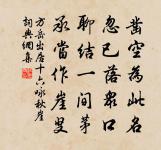 凿空为此名
忽已落众口
聊结一间茅
承当作崖叟
方岳出居十六咏秋崖
词典网集